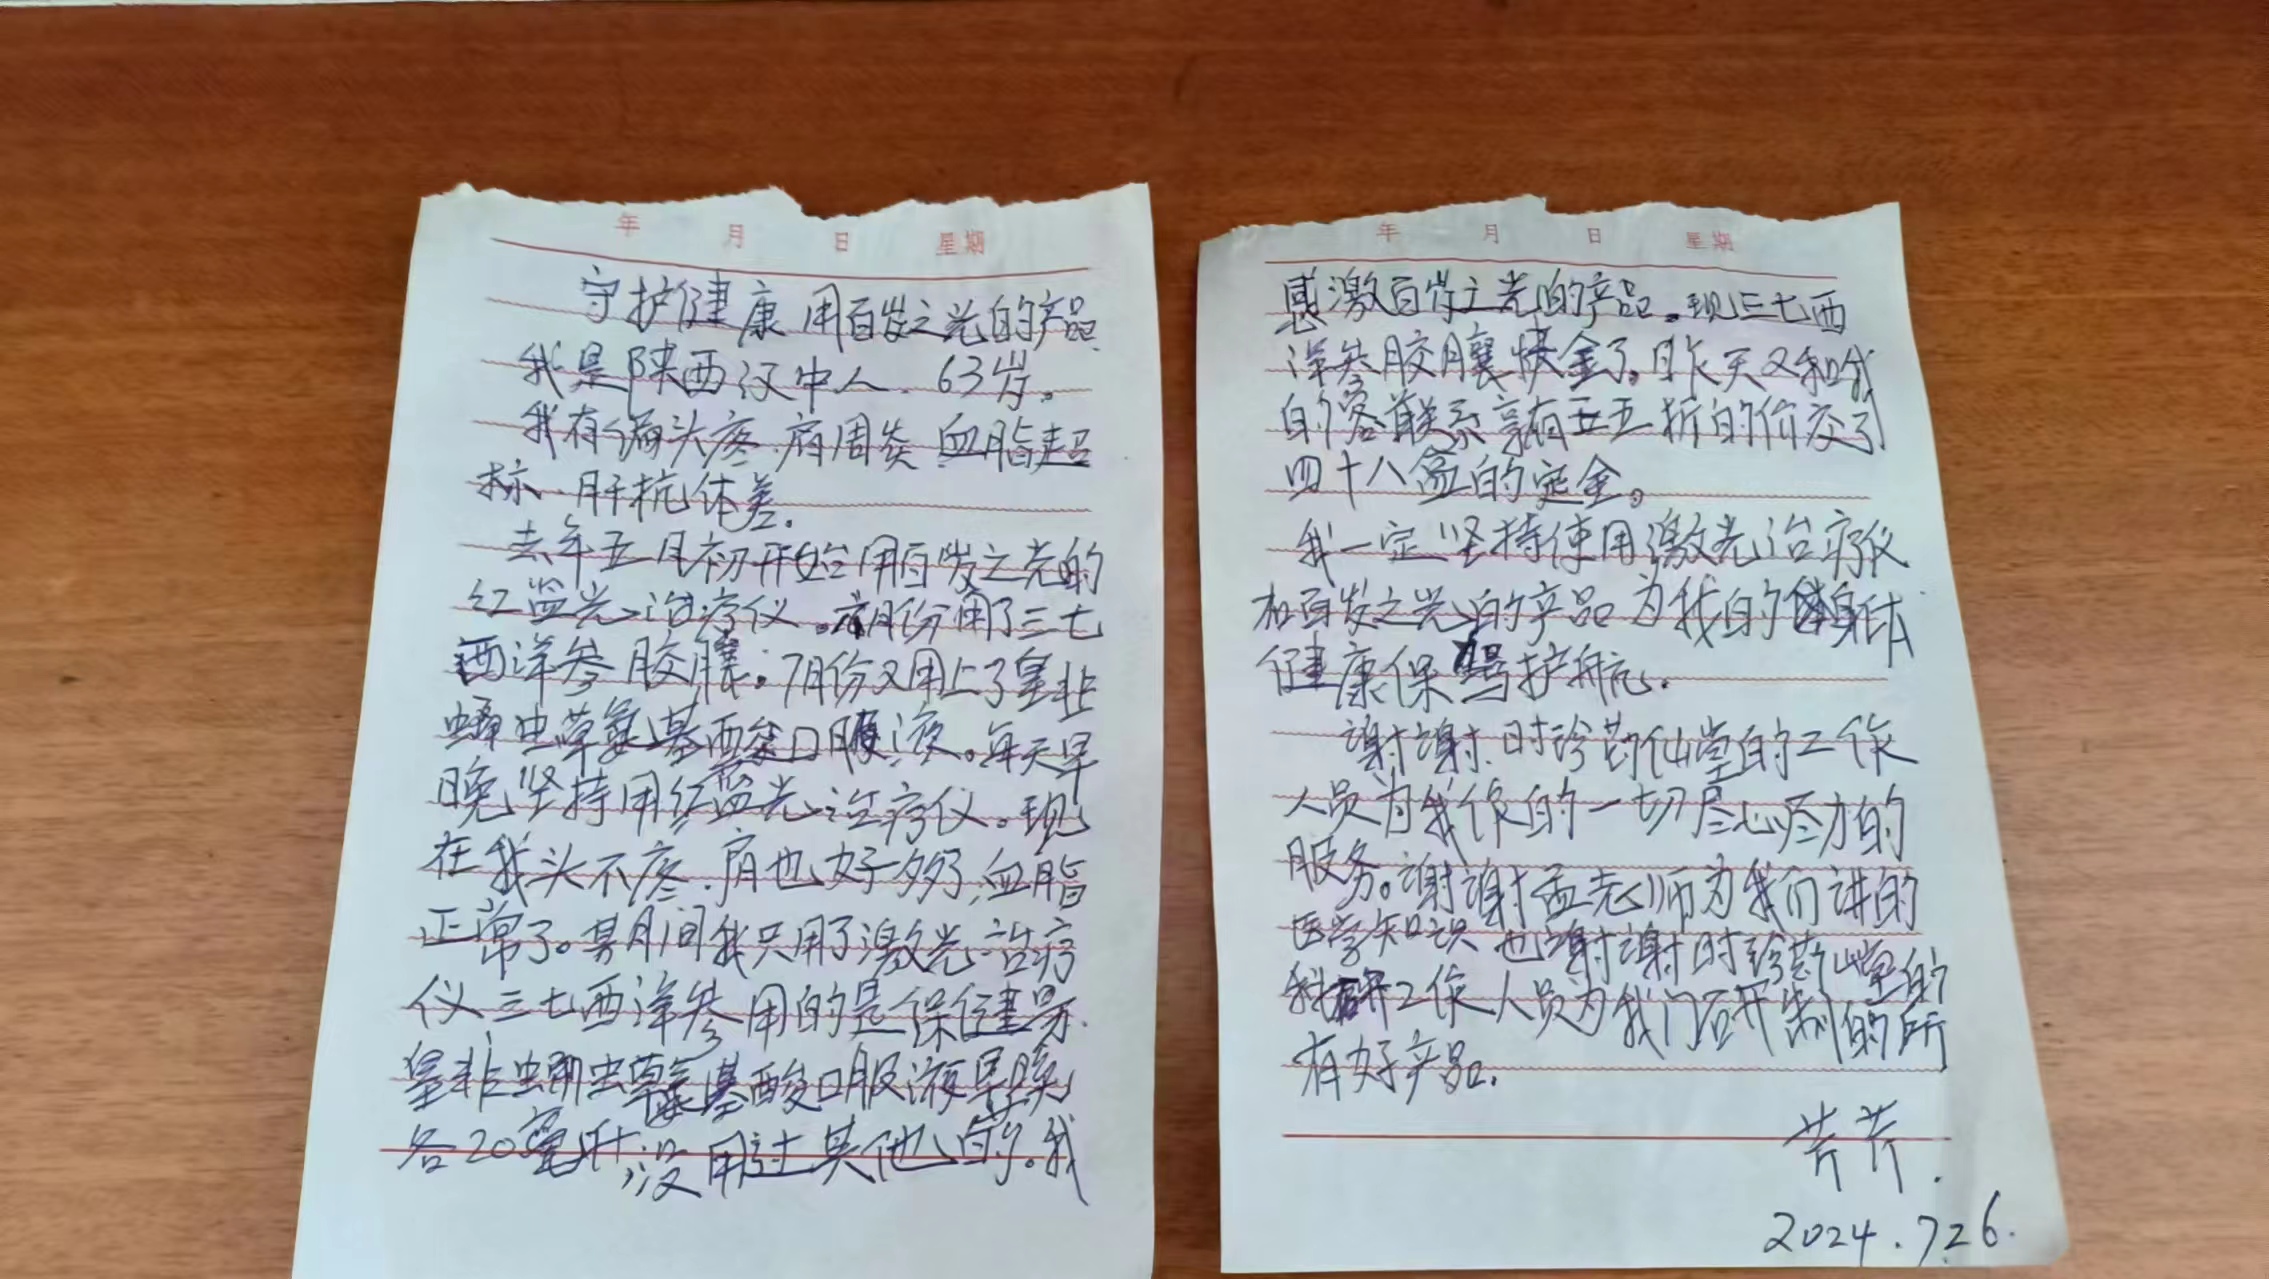 年 月 日 星期
守护健康 用百岁之光的产品
我是陕西汉中人. 63岁。
我有偏头疼.肩周炎 血脂超
标.肝抗体差.
去年五月初开始用百岁之光的
红蓝光治疗仪。六月份用了三七
西洋参胶囊。7月份又用上了皇非
蛹虫草氨基酸口服液。每天早
晚坚持用红蓝光治疗仪。现
在我头不疼.肩也好多了,血脂
正常了。其间我只用了激光治疗
仪三七西洋参用的是保健量.
皇非蛹虫草氨基酸口服液早晚
各20毫升,没用过其他的。我
年 月 日 星期
感激百岁之光的产品。现三七西
洋参胶囊快金了。昨天又和我
的客联系享有五五折的价交了
四十八盒的定金。
我一定坚持使用激光治疗仪
和百岁之光的产品为我的身体
健康保驾护航.
谢谢时珍药仙堂的工作
人员为我作的一切尽心尽力的
服务。谢谢孟老师为我们讲的
医学知识 也谢谢时珍药仙堂的
科研工作人员为我门研制的所
有好产品.
芹芹.
2024.7.26.